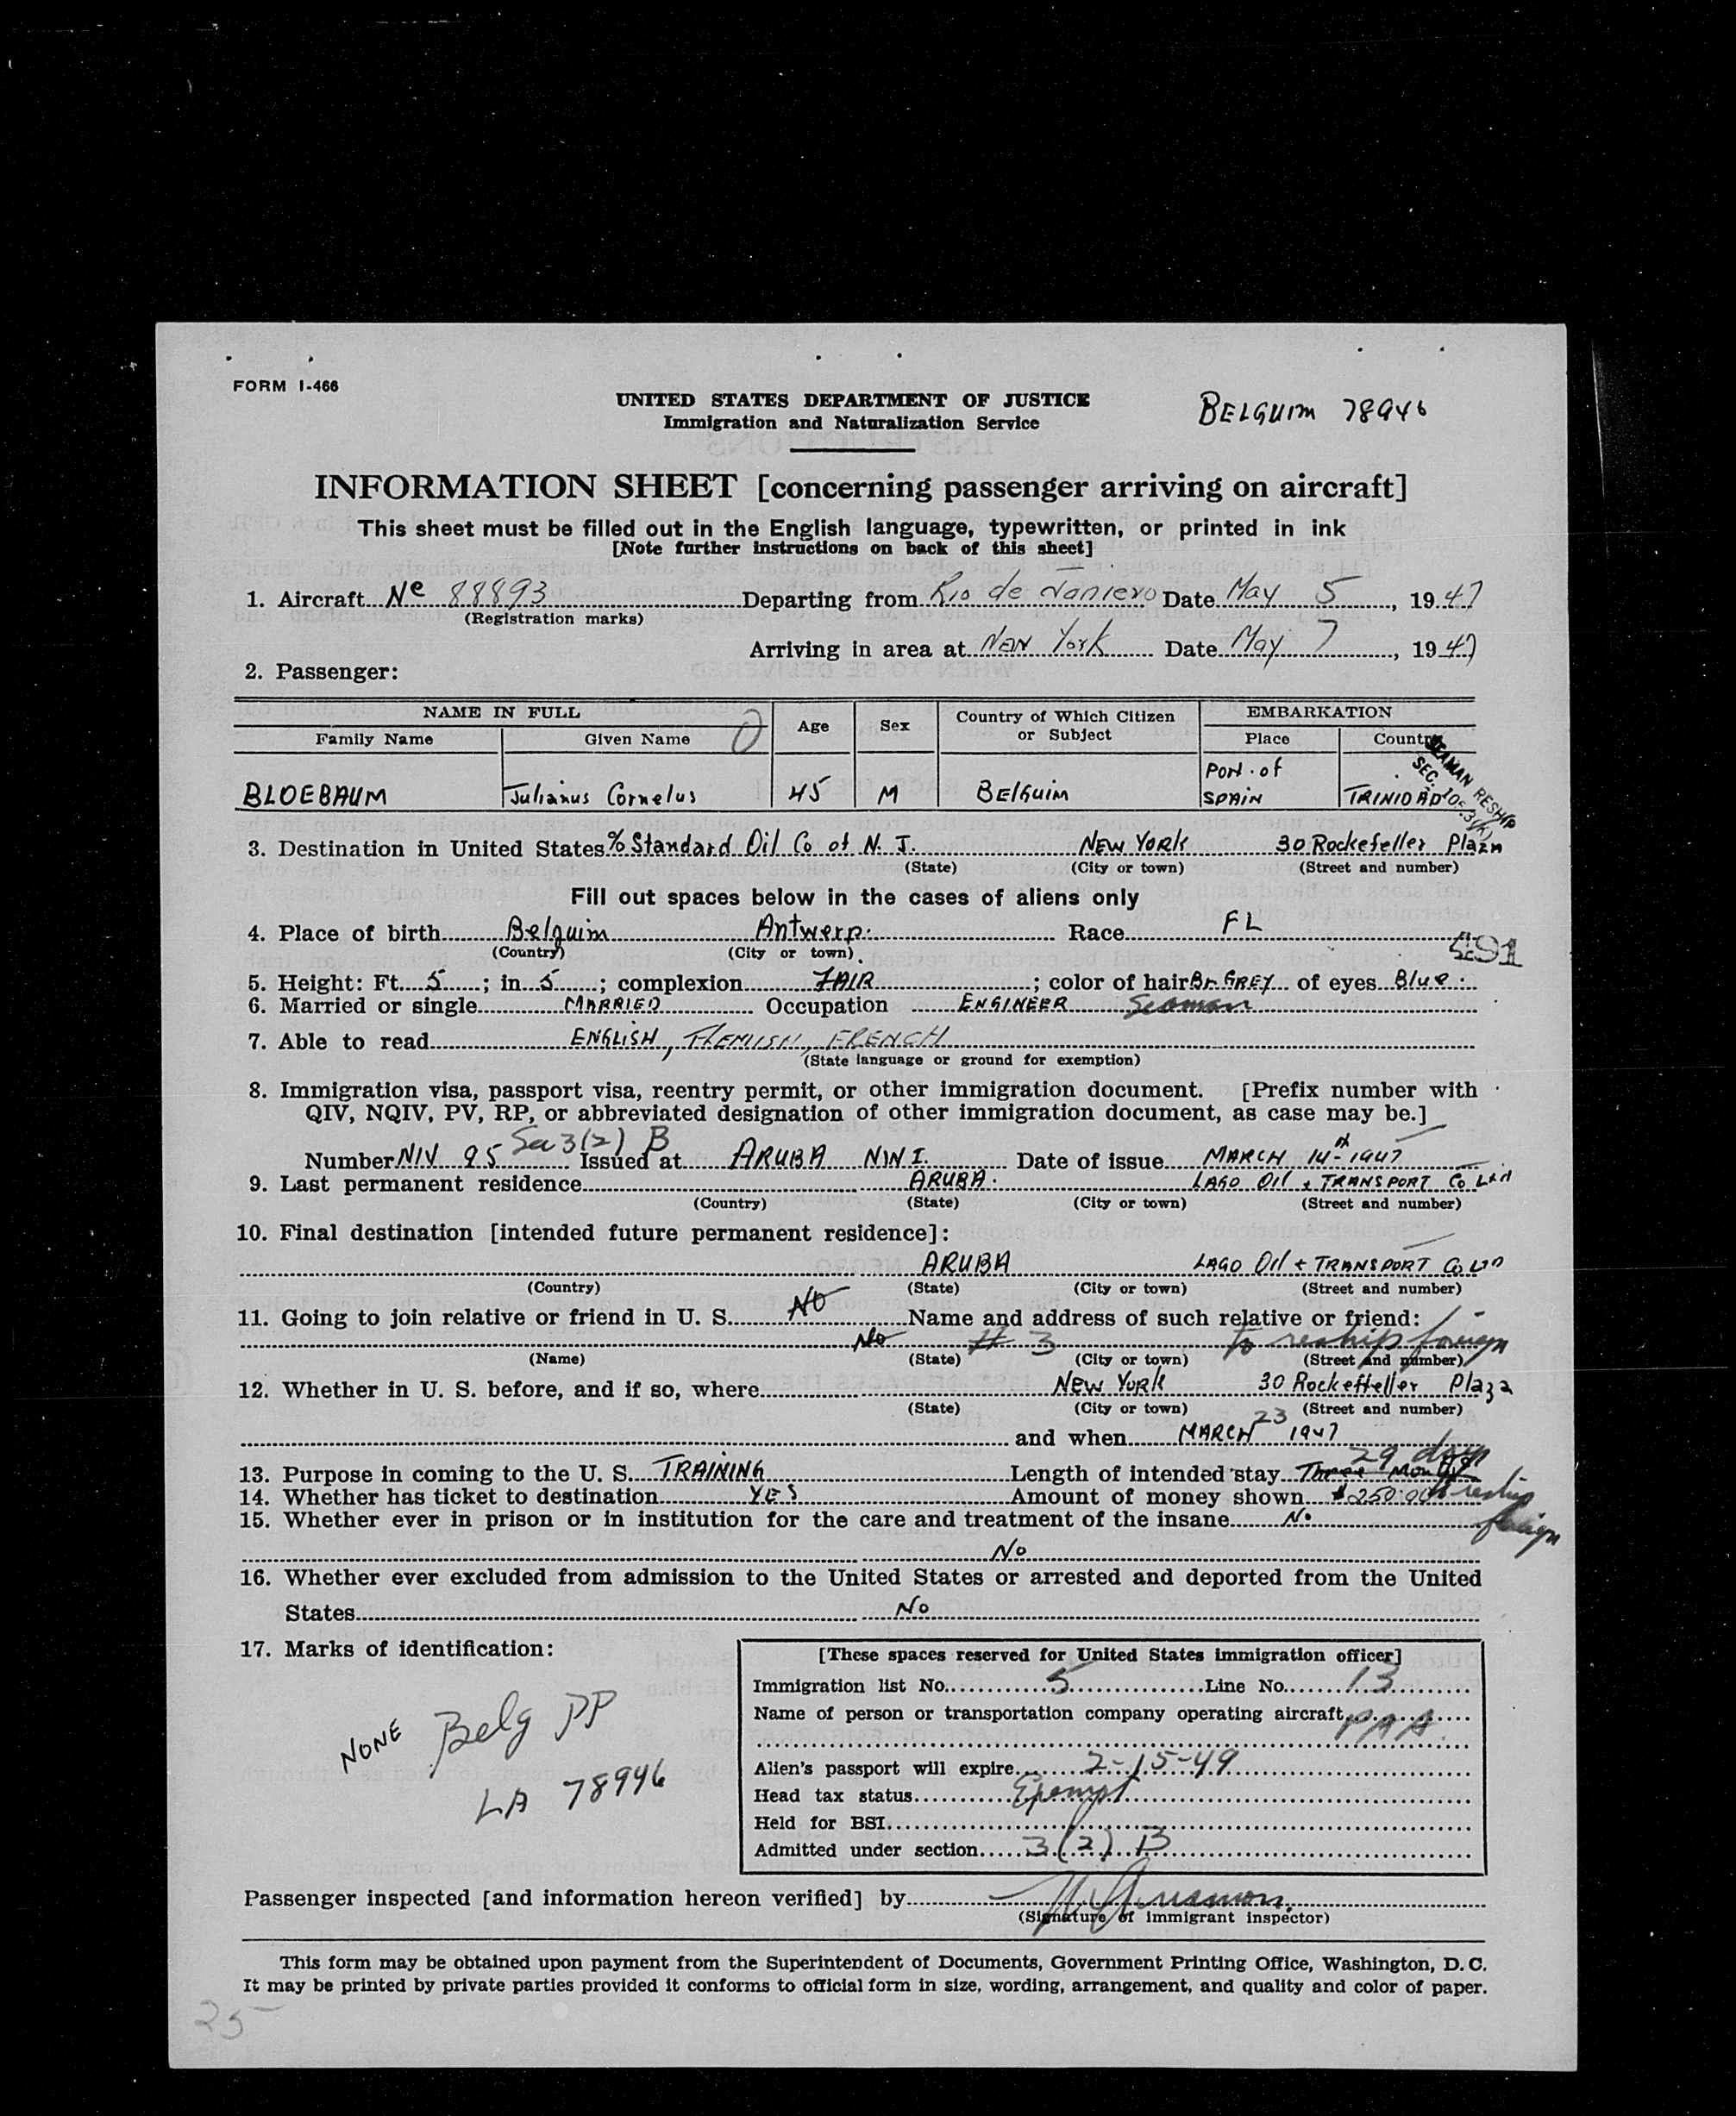 FORM I-466
UNITED STATES DEPARTMENT OF JUSTICE
Immigration and Naturalization Service
BELGUIM 78946
INFORMATION SHEET [concerning passenger arriving on aircraft]
This sheet must be filled out in the English language, typewritten, or printed in ink
[Note further instructions on back of this sheet]
1. Aircraft Nc 88893 Departing from Rio de Janiero Date May 5, 1947
(Registration marks)
Arriving in area at New York Date May 7, 1947
2. Passenger:
NAME IN FULL Age Sex Country of Which Citizen or Subject EMBARKATION
Family Name Given Name Place Country
BLOEBAUM Julianus Cornelus 45 M BElGuim Port of SPAIN TRINIDAD
SEAMAN RESHIP
SEC. 105.3(k)
3. Destination in United States % Standard Oil Co of N. J. NEW YORK 30 Rockefeller Plaza
(State) (City or town) (Street and number)
Fill out spaces below in the cases of aliens only
4. Place of birth Belguim Antwerp. Race FL
(Country) (City or town)
491
5. Height: Ft. 5; in 5; complexion FAIR; color of hair Br. GREY of eyes Blue.
6. Married or single MARRIED Occupation ENGINEER Seaman
7. Able to read ENGLISH, FLEMIISH, FRENCH
(State language or ground for exemption)
8. Immigration visa, passport visa, reentry permit, or other immigration document. [Prefix number with
QIV, NQIV, PV, RP, or abbreviated designation of other immigration document, as case may be.]
Number NIV 95 Sec 3(2) B Issued at ARUBA NWI. Date of issue MARCH 14th 1947
9. Last permanent residence ARUBA. LAGO Oil + TRANSPORT Co Ltd
(Country) (State) (City or town) (Street and number)
10. Final destination [intended future permanent residence]:
ARUBA LAGO Oil + TRANSPORT Co LTD
(Country) (State) (City or town) (Street and number)
11. Going to join relative or friend in U. S. NO Name and address of such relative or friend:
No # 3 to reship foreign
(Name) (State) (City or town) (Street and number)
12. Whether in U. S. before, and if so, where NEW YORK 30 Rockefteller Plaza
(State) (City or town) (Street and number)
and when MARCH 23 1947
13. Purpose in coming to the U. S. TRAINING Length of intended stay Three Months 29 days
14. Whether has ticket to destination YES Amount of money shown $250.00 to reship
foreign
15. Whether ever in prison or in institution for the care and treatment of the insane No
No
16. Whether ever excluded from admission to the United States or arrested and deported from the United
States No
17. Marks of identification:
NONE Belg PP
LA 78946
[These spaces reserved for United States immigration officer]
Immigration list No. 5 Line No. 13
Name of person or transportation company operating aircraft PAA.
Alien's passport will expire 2-15-49
Head tax status Exempt
Held for BSI
Admitted under section 3(2) B
Passenger inspected [and information hereon verified] by
(Signature of immigrant inspector)
This form may be obtained upon payment from the Superintendent of Documents, Government Printing Office, Washington, D. C.
It may be printed by private parties provided it conforms to official form in size, wording, arrangement, and quality and color of paper.
25